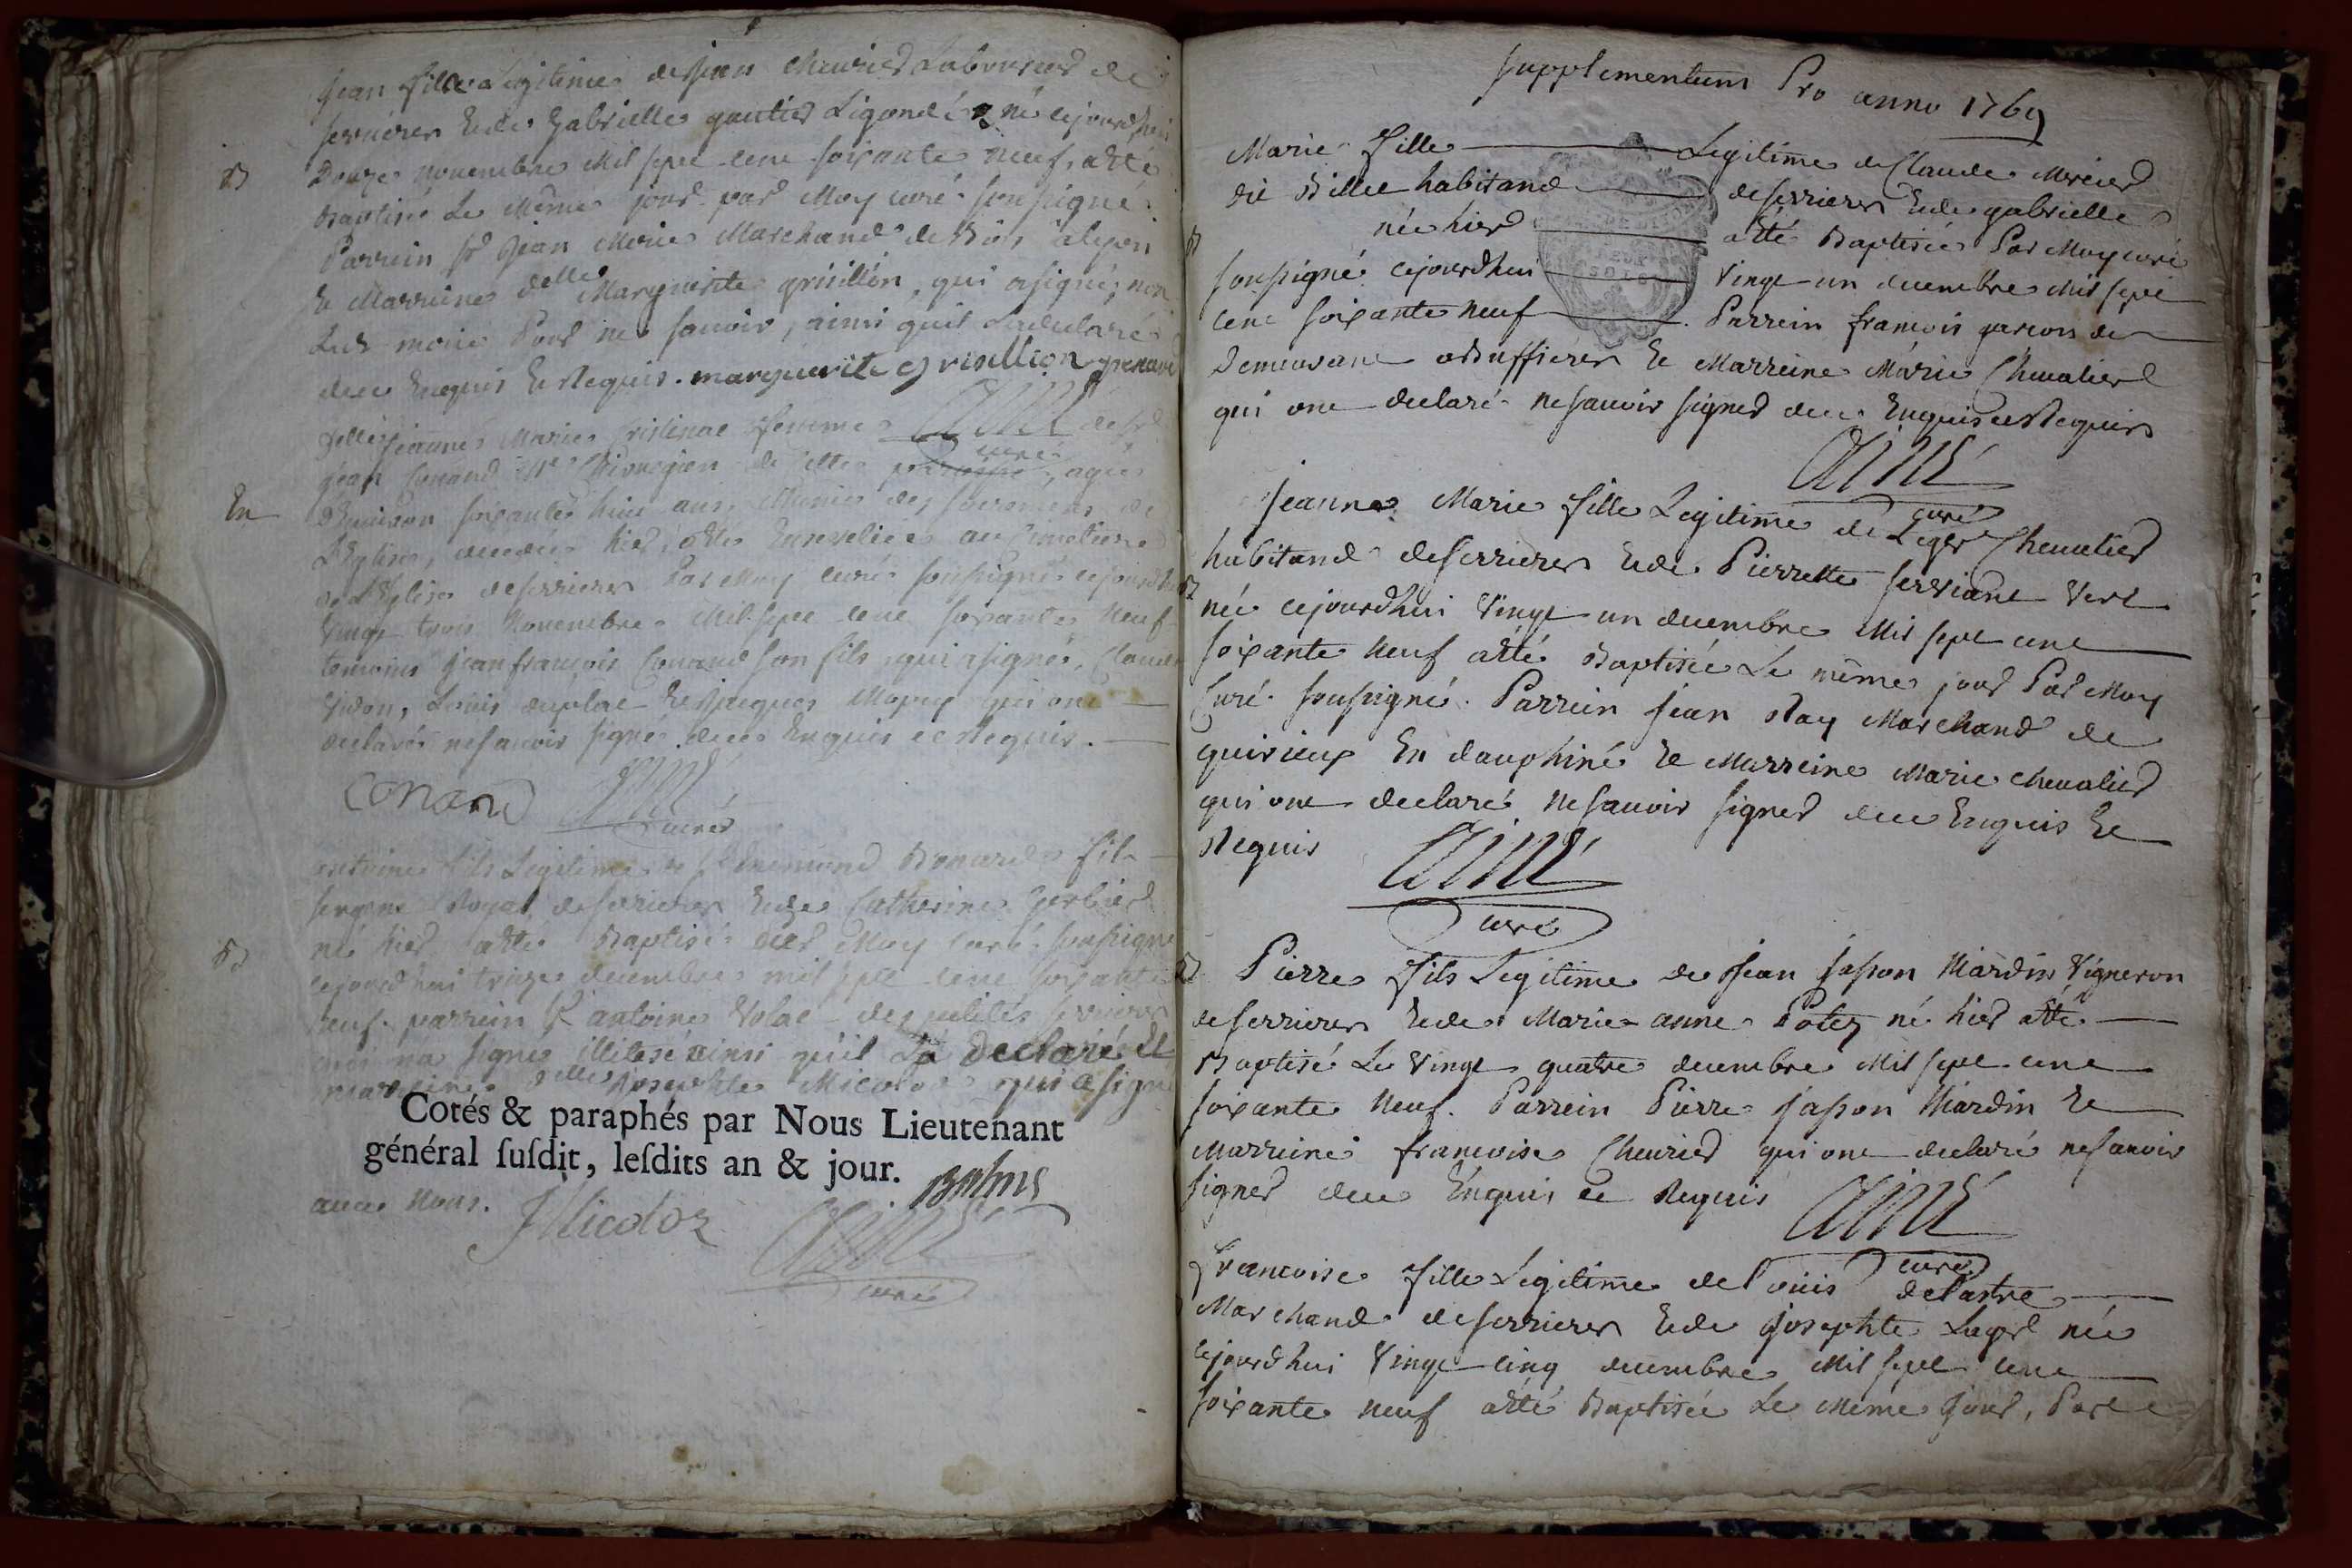 Jean fils Legitime de Jean Cheurier Laboureur de
serrieres et de Gabrielle gautier Ligondé né cejourdhui
B Douze nouembre Mil sept cent soixante neuf, a été
Baptisé Le Même jour par Moy curé soussigné.
Parrein Sr Jean Morie Marchand de Bois a Lyon
et Marreine delle Marguerite grisillon, qui a signé, non
Led. moire Pour ne sauoir, ainsi quil La declaré
dece Enquis et Requis. marguerite grisillion
delle jeanne Marie cristinae femme de sr
jean Conand Me Chirurgien de cette paroisse, agée
En D'enuiron soixante huit ans, Munie des sacremens de
L'Eglise, decedée hier, a été Enseuelie au Cimetiere
de L'Eglise de serrieres Par Moy curé soussigné cejourdhui
Vingt trois Nouembre Mil sept cent soixante neuf
temoins jean françois Conand son fils qui a signé, Claude
Vidon, Louis duplat et jacques Mopuy qui ont
declarés ne sauoir signé dece Enquis et Requis.
Conand Aimé
curé
antoine fils Legitime de sr Bonnard fils
sergent Royal de serrieres et de Catherine Gerbier
B né hier a été Baptisé par Moy curé soussigné
cejourdhui treize decembre mil sept cent soixante
neuf. parrein sr antoine Volae des petites serrieres
qui na signé illiteré ainsi qu'il La declaré et
marreine delle josephte Micoloz qui a signé
Cotés & paraphés par Nous Lieutenant
général ſuſdit, leſdits an & jour.
auec nous. JMicoloz Aimé
curé
supplementum Pro anno 1769
Marie fille Legitime de Claude Mercier
dit Billie habitand de serrieres et de gabrielle
B née hier a été Baptisée Par Moy curé
soussigné cejourdhui Vingt un decembre Mil sept
cent soixante neuf. Parrein francois garcon de
Demeurant a Buffieres et Marreine Marie Cheualier
qui ont declaré ne sauoir signer dece Enquis et Requis
Aimé
curé
Jeanne Marie fille Legitime de Leger Cheualier
habitand de serrieres et de Pierrette seruiant Vert
B née cejourdhui Vingt un decembre Mil sept cent
soixante neuf a été Baptisée Le même jour Par Moy
Curé soussigné. Parrein jean Ray Marchand de
quirieux En dauphiné et Marreine Marie cheualier
qui ont declaré ne sauoir signer dece Enquis et
Requis Aimé
curé
B Pierre fils Legitime de jean jasson Mardin Vigneron
de serrieres et de Marie anne Potez né hier a été
Baptisé Le Vingt quatre decembre Mil sept cent
soixante neuf. Parrein Pierre jasson Mardin et
Marreine francoise Cheurier qui ont declaré ne sauoir
signer dece Enquis et Requis Aimé
curé
Francoise fille Legitime de Louis delastre
Marchand de serrieres et de josephte Lager née
cejourdhui Vingt cinq decembre Mil sept cent
soixante neuf a été Baptisée Le Même Jour, Par